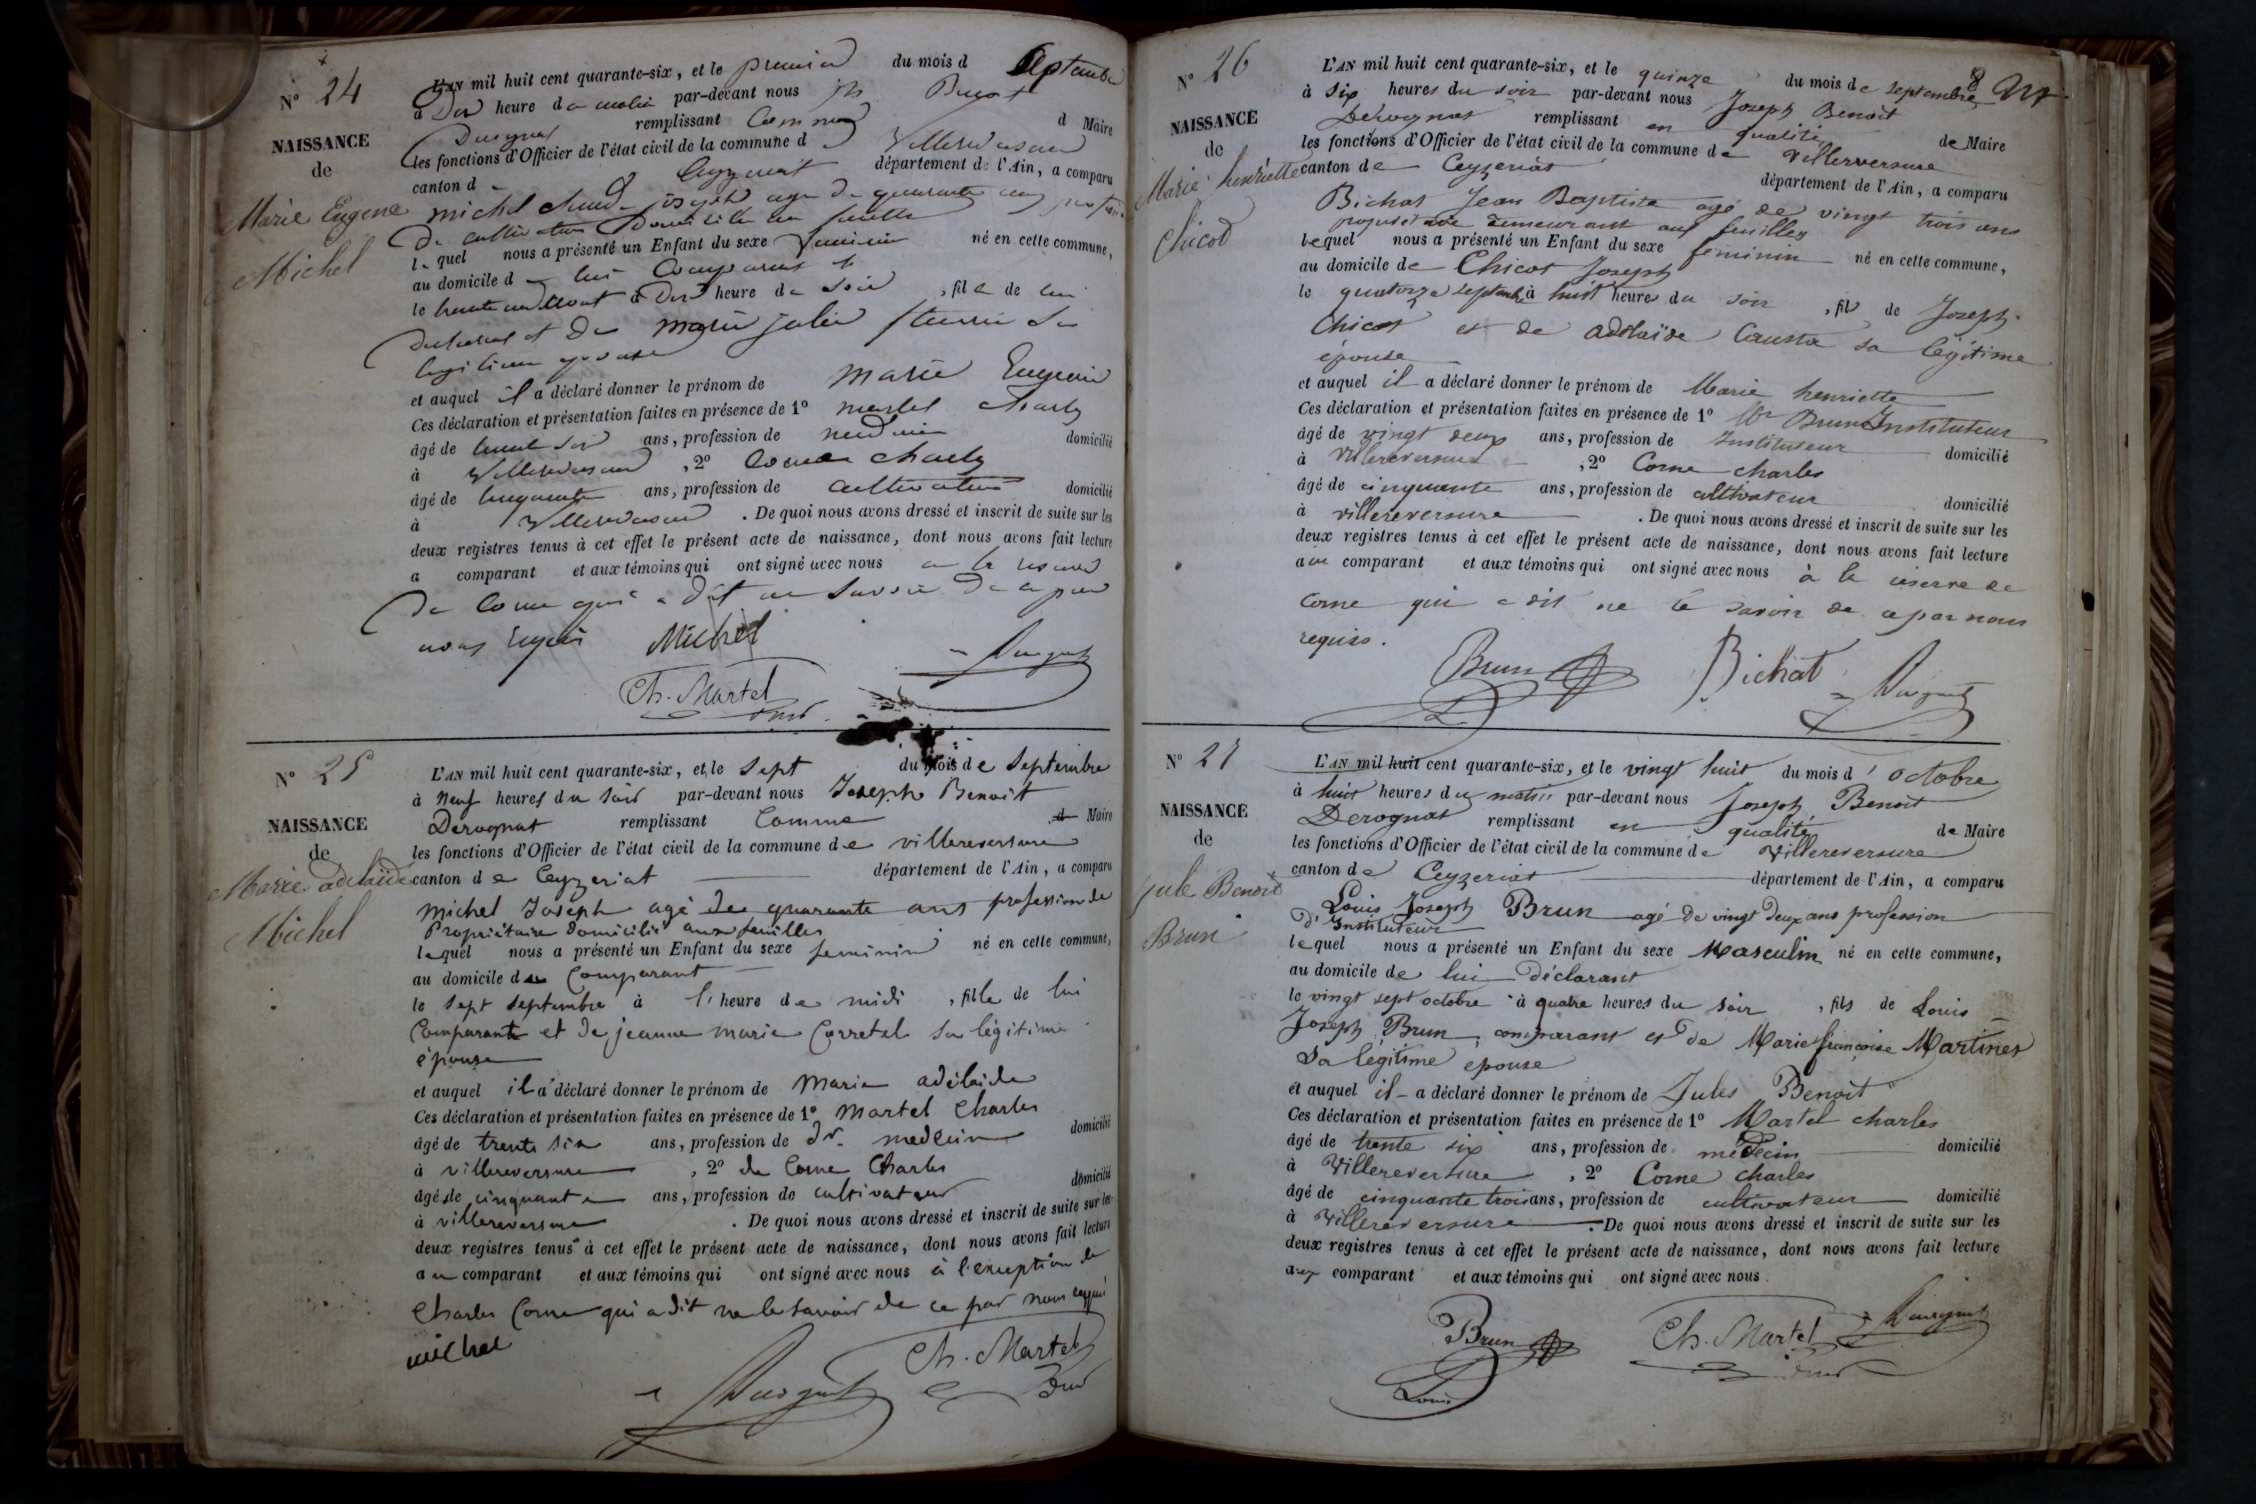 N° 24
NAISSANCE
de
Marie Eugene
Michel
L'AN mil huit cent quarante-six, et le premier du mois d septembre
à Dix heure da matin par-devant nous jh Benoit
remplissant Comme d Maire
les fonctions d'Officier de l'état civil de la commune d Villereversure
canton d Ceyzeriat département de l'Ain, a comparu
michel claude joseph age de quarante cinq
De cultivateur Domicilié
le quel nous a présenté un Enfant du sexe feminin né en cette commune,
au domicile d lui Comparant
le trente un aout à Dix heure de soir , fille de lui
declarant et De marie julie sa
legitime epouse
et auquel il a déclaré donner le prénom de marie Eugenie
Ces déclaration et présentation faites en présence de 1° martel Charles
âgé de trente six ans, profession de medecin domicilié
à Villereversure , 2° Corne Charles
âgé de cinquante ans, profession de cultivateur domicilié
à Villereversure . De quoi nous avons dressé et inscrit de suite sur les
deux registres tenus à cet effet le présent acte de naissance, dont nous avons fait lecture
a comparant et aux témoins qui ont signé avec nous a la reserve
De Corne qui a dit ne savoir De ce par
nous requis Michel
Ch. Martel
N° 25
NAISSANCE
de
Marie adelaïde
Michel
L'AN mil huit cent quarante-six, et le sept du mois de septembre
à neuf heures du soir par-devant nous Joseph Benoit
Derognat remplissant Comme d Maire
les fonctions d'Officier de l'état civil de la commune de villereversure
canton de Ceyzeriat département de l'Ain, a comparu
michel Joseph agé de quarante ans profession de
Propriétaire domicilié aux feuilles
lequel nous a présenté un Enfant du sexe feminin né en cette commune,
au domicile du Comparant
le sept septembre à l'heure de midi , fille de lui
Comparant et de jeanne marie Corretel sa légitime
épouse
et auquel il a déclaré donner le prénom de marie adélaide
Ces déclaration et présentation faites en présence de 1° martel Charles
âgé de trente six ans, profession de dr. medecin domicilié
à villereversure , 2° de Corne Charles
âgé de cinquante ans, profession de cultivateur domicilié
à villereversure . De quoi nous avons dressé et inscrit de suite sur les
deux registres tenus à cet effet le présent acte de naissance, dont nous avons fait lecture
au comparant et aux témoins qui ont signé avec nous à l'exception de
Charles Corne qui a dit ne le savoir de ce par nous requis
michel
Ch. Martel
N° 26
NAISSANCE
de
Marie henriette
Chicod
L'AN mil huit cent quarante-six, et le quinze du mois de septembre
à six heures du soir par-devant nous Joseph Benoit
Derognat remplissant en qualité de Maire
les fonctions d'Officier de l'état civil de la commune de villereversure
canton de Ceyzeriat département de l'Ain, a comparu
Bichat Jean Baptiste agé de vingt trois ans
proprietaire demeurant aux feuilles
lequel nous a présenté un Enfant du sexe feminin né en cette commune,
au domicile de Chicot Joseph
le quatorze septembre à huit heures du soir , fils de Joseph
Chicot et de adélaïde sa légitime
épouse
et auquel il a déclaré donner le prénom de Marie henriette
Ces déclaration et présentation faites en présence de 1° Mr Brun Instituteur
âgé de vingt deux ans, profession de Instituteur domicilié
à villereversure , 2° Corne charles
âgé de cinquante ans, profession de cultivateur domicilié
à villereversure . De quoi nous avons dressé et inscrit de suite sur les
deux registres tenus à cet effet le présent acte de naissance, dont nous avons fait lecture
au comparant et aux témoins qui ont signé avec nous à la réserve de
Corne qui a dit ne le savoir de ce par nous
requiso.
Brun Bichat
N° 27
NAISSANCE
de
Jule Benoit
Brun
L'AN mil huit cent quarante-six, et le vingt huit du mois d'octobre
à huit heures du matin par-devant nous Joseph Benoit
Derognat remplissant en qualité de Maire
les fonctions d'Officier de l'état civil de la commune de Villereversure
canton de Ceyzeriat département de l'Ain, a comparu
Louis Joseph Brun agé de vingt deux ans profession
d'Instituteur
lequel nous a présenté un Enfant du sexe Masculin né en cette commune,
au domicile de lui déclarant
le vingt sept octobre à quatre heures du soir , fils de Louis
Joseph Brun comparant et de Marie françoise Martinet
sa légitime épouse
et auquel il a déclaré donner le prénom de Jules Benoit
Ces déclaration et présentation faites en présence de 1° Martel charles
âgé de trente six ans, profession de médecin domicilié
à Villereversure , 2° Corne charles
âgé de cinquante trois ans, profession de cultivateur domicilié
à Villereversure . De quoi nous avons dressé et inscrit de suite sur les
deux registres tenus à cet effet le présent acte de naissance, dont nous avons fait lecture
aux comparant et aux témoins qui ont signé avec nous.
Brun Ch. Martel
Louis